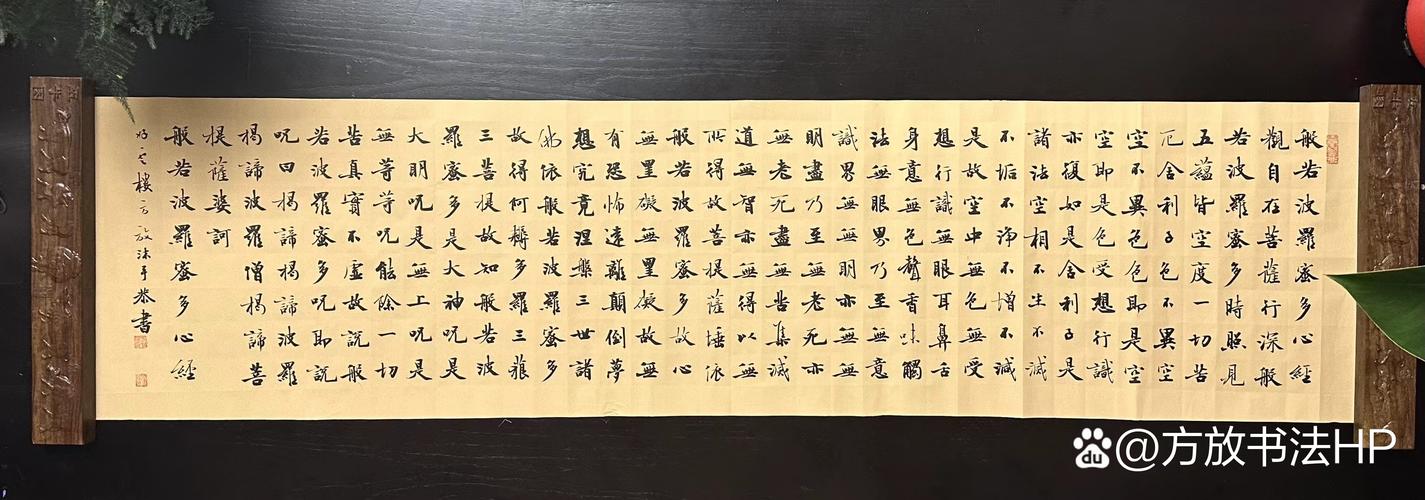 般若波羅蜜多心經
觀自在菩薩行深般
若波羅蜜多時照見
五蘊皆空度一切苦
厄舍利子色不異空
空不異色色即是空
空即是色受想行識
亦復如是舍利子是
諸法空相不生不滅
不垢不淨不增不減
是故空中無色無受
想行識無眼耳鼻舌
身意無色聲香味觸
法無眼界乃至無意
識界無無明亦無無
明盡乃至無老死亦
無老死盡無苦集滅
道無智亦無得以無
所得故菩提薩埵依
般若波羅蜜多故心
無罣礙無罣礙故無
有恐怖遠離顛倒夢
想究竟涅槃三世諸
佛依般若波羅蜜多
故得阿耨多羅三藐
三菩提故知般若波
羅蜜多是大神呪是
大明呪是無上呪是
無等等呪能除一切
苦真實不虛故說般
若波羅蜜多呪即說
呪曰揭諦揭諦波羅
揭諦波羅僧揭諦菩
提薩婆訶
般若波羅蜜多心經
樓方放沐手恭書
du @方放书法HP